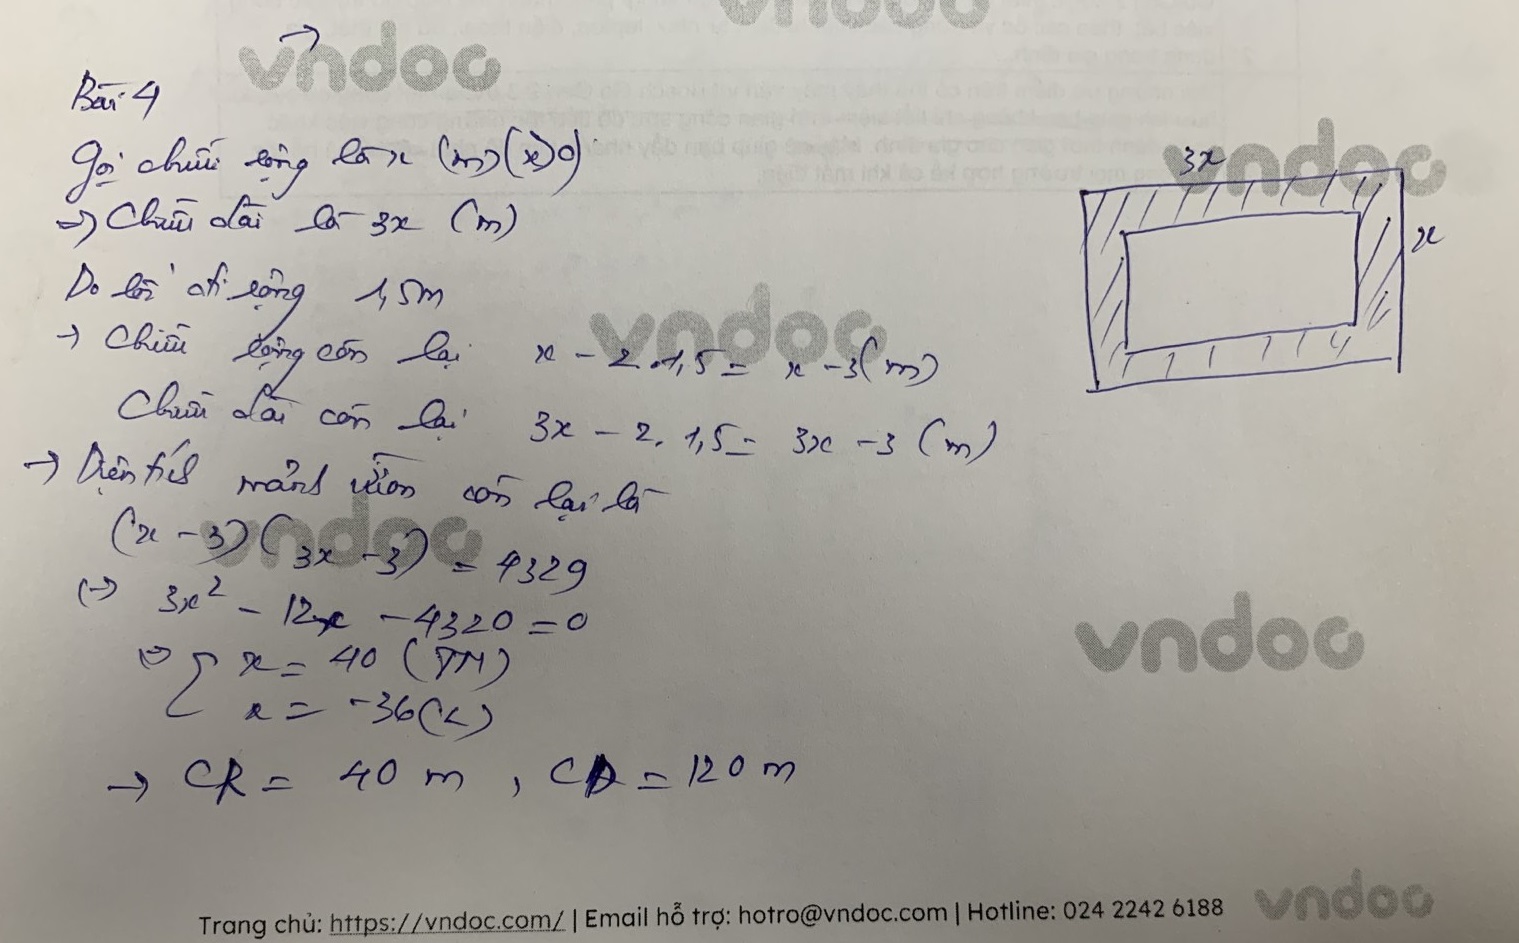 vndoc
vndoc
Bài 4
Gọi chiều rộng là x (m) (x>0)
3x
vndoc
=> Chiều dài là 3x (m)
x
Do lối đi rộng 1,5m
vndoc
→ Chiều rộng còn lại x - 2.1,5 = x - 3 (m)
Chiều dài còn lại 3x - 2.1,5 = 3x - 3 (m)
→ Diện tích mảnh vườn còn lại là
vndoc
(x - 3)(3x - 3) = 4329
(→ 3x² - 12x - 4320 = 0
vndoc
x = 40 (TM)
x = -36 (L)
→ CR = 40 m, CD = 120 m
vndoc
Trang chủ: https://vndoc.com/ | Email hỗ trợ: hotro@vndoc.com | Hotline: 024 2242 6188